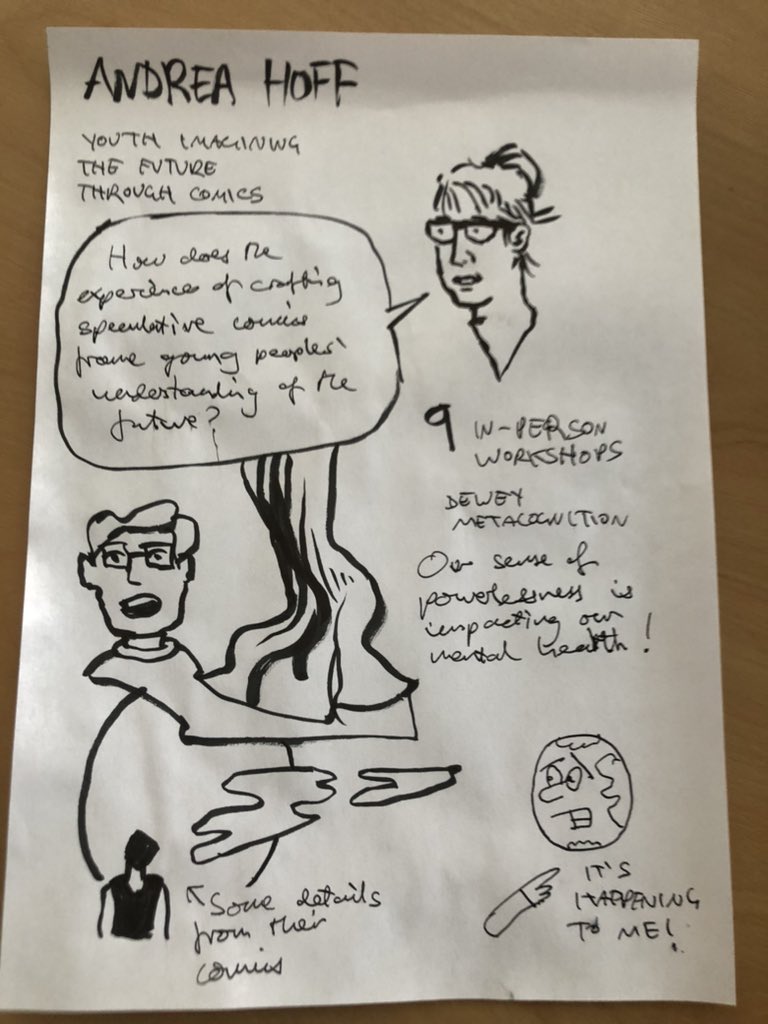 ANDREA HOFF
YOUTH IMAGINING
THE FUTURE
THROUGH COMICS
How does the
experience of crafting
speculative comics
frame young peoples'
understanding of the
future?
9 IN-PERSON
WORKSHOPS
DEWEY
METACOGNITION
Our sense of
powerlessness is
impacting our
mental health!
IT'S
HAPPENING
TO ME!
Some details
from their
comics